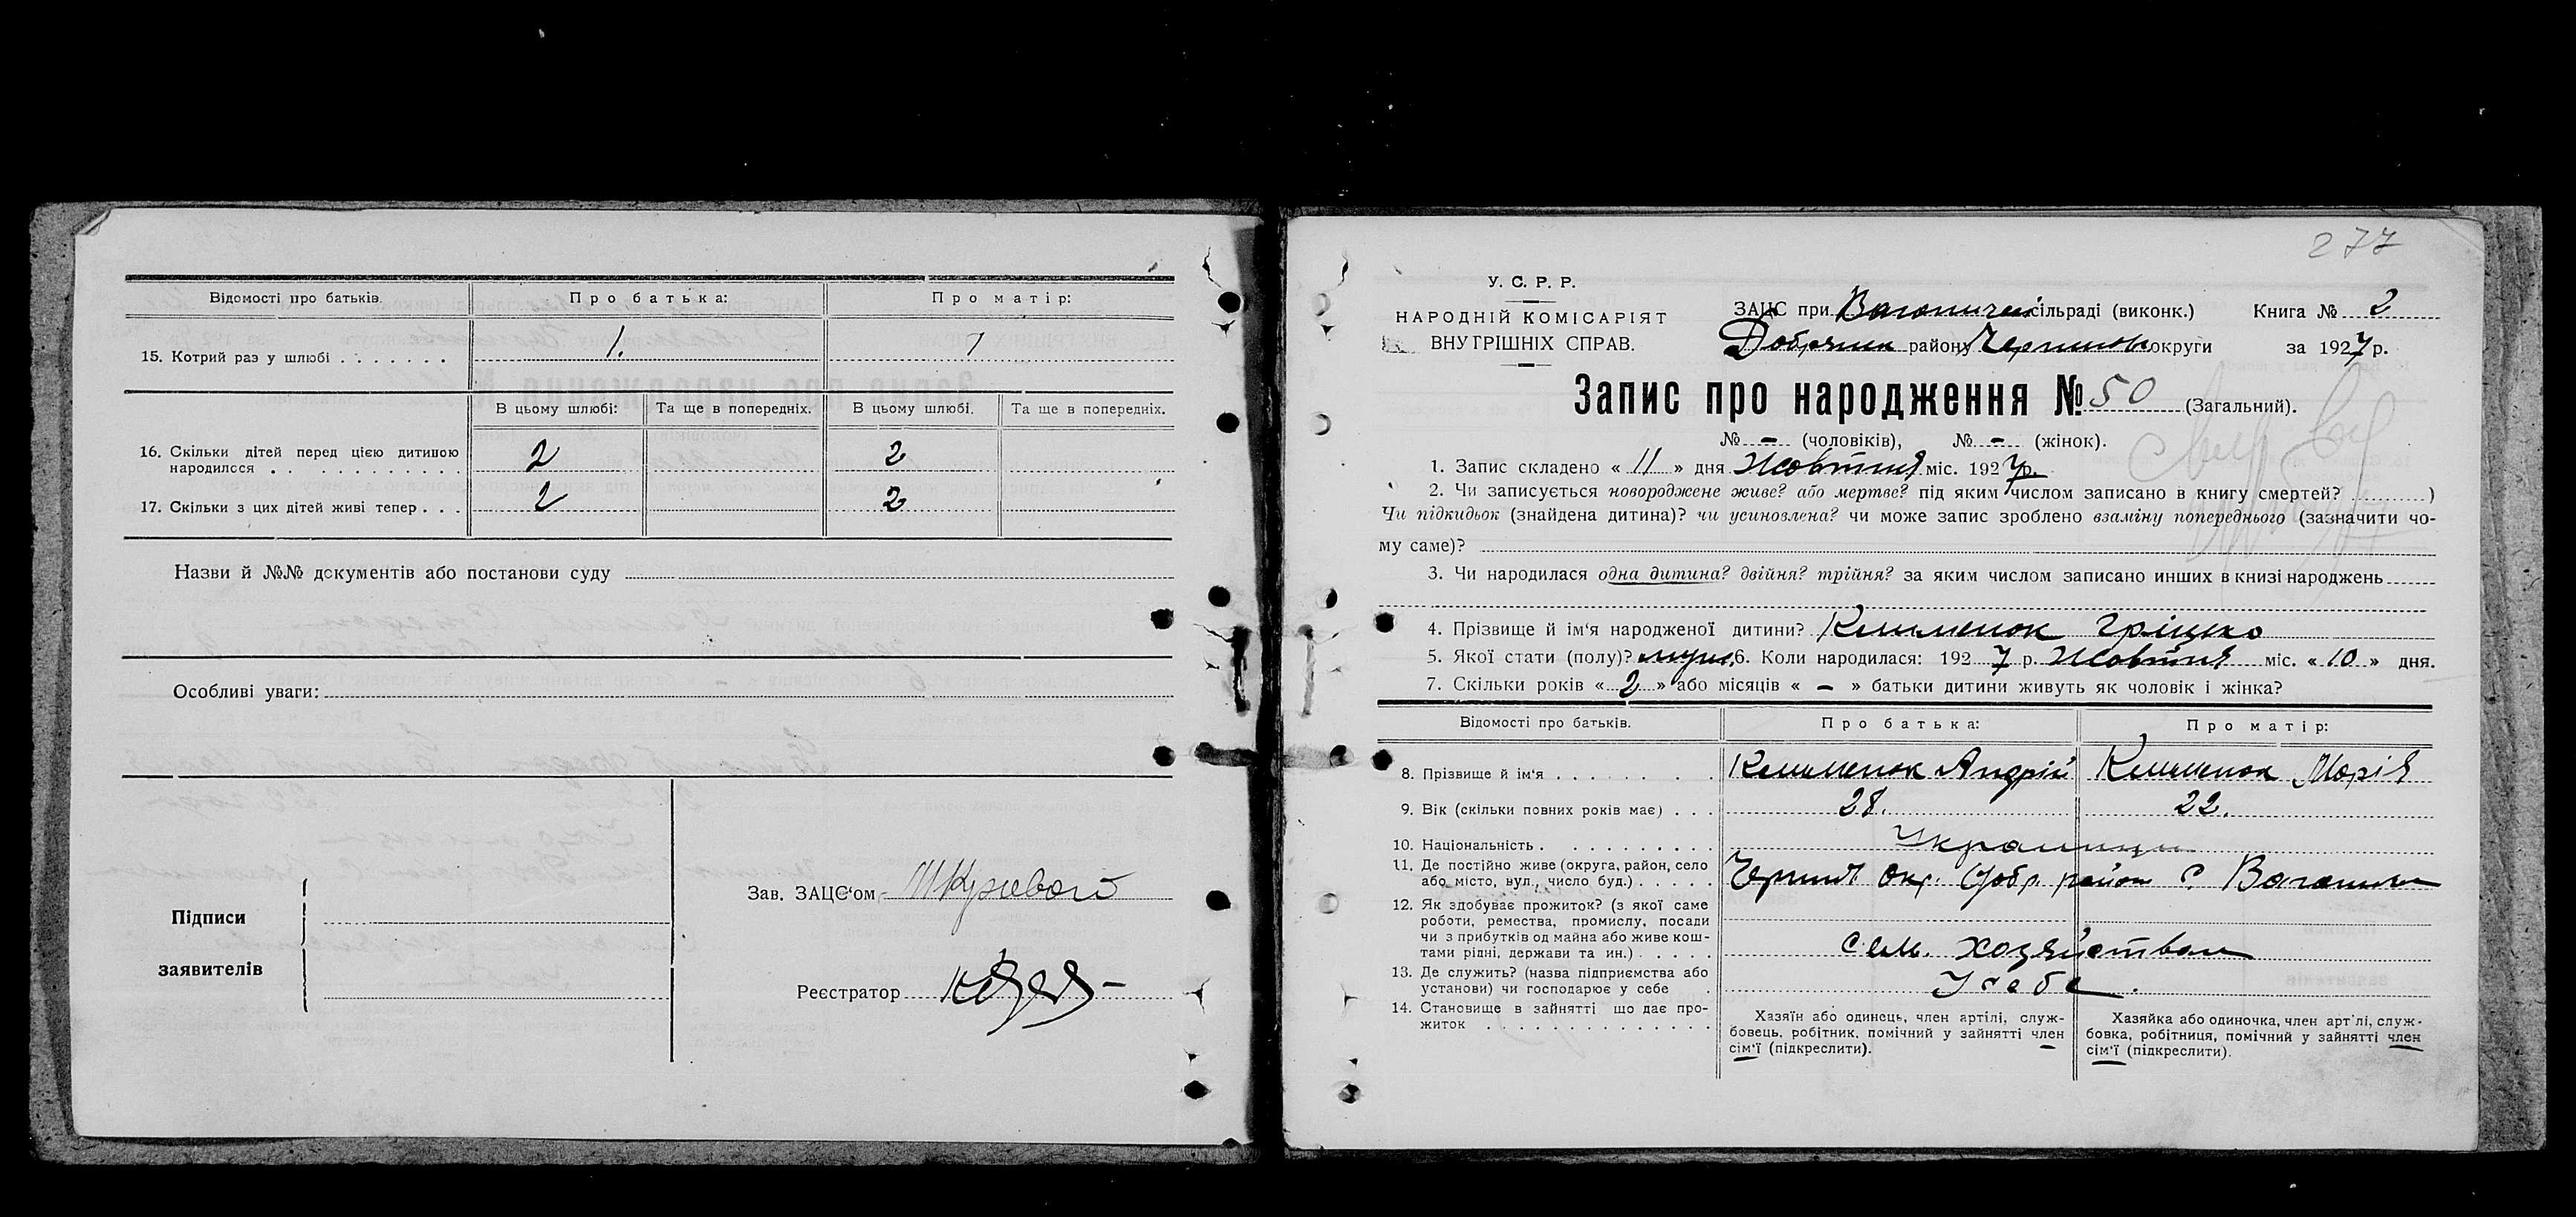 Відомості про батьків. Про батька: Про матір:
15. Котрий раз у шлюбі . . . . . . . 1. 1
В цьому шлюбі: Та ще в попередніх. В цьому шлюбі. Та ще в попередніх.
16. Скільки дітей перед цією дитиною
народилося . . . . . . . . . . . 2 2
17. Скільки з цих дітей живі тепер . . . 2 2
Назви й №№ документів або постанови суду
Особливі уваги:
Підписи
заявителів
Зав. ЗАЦС'ом
Реєстратор
277
У. С. Р. Р.
НАРОДНІЙ КОМІСАРІЯТ
ВНУТРІШНІХ СПРАВ.
ЗАЦС при сільраді (виконк.) Книга № 2
Добрянк району Чернигов округи за 1927 р.
Запис про народження № 50 (Загальний).
№ - (чоловіків), № - (жінок).
1. Запис складено « 11 » дня Жовтня міс. 1927р.
2. Чи записується новороджене живе? або мертве? під яким числом записано в книгу смертей? )
Чи підкидьок (знайдена дитина)? чи усиновлена? чи може запис зроблено взаміну попереднього (зазначити чо-
му саме)?
3. Чи народилася одна дитина? двійня? трійня? за яким числом записано инших в книзі народжень
4. Прізвище й ім'я народженої дитини? Клименок Гріцько
5. Якої стати (полу)? муж. 6. Коли народилася: 1927 р. Жовтня міс. « 10 » дня.
7. Скільки років « 2 » або місяців « - » батьки дитини живуть як чоловік і жінка?
Відомості про батьків. Про батька: Про матір:
8. Прізвище й ім'я . . . . . . . . Клименок Андрій Клименок Марія
9. Вік (скільки повних років має) . . . 28. 22.
10. Національність . . . . . . . . . Украинци
11. Де постійно живе (округа, район, село
або місто, вул., число буд.) . . . . . Черниг Окр. Добр. район С.
12. Як здобуває прожиток? (з якої саме
роботи, ремества, промислу, посади
чи з прибутків од майна або живе кош-
тами рідні, держави та ин.) . . . . . сель. хозяйством
13. Де служить? (назва підприємства або
установи) чи господарює у себе У себе.
14. Становище в зайнятті що дає про-
житок . . . . . . . . . . . . . .
Хазяїн або одинець, член артілі, служ-
бовець, робітник, помічний у зайнятті член
сім'ї (підкреслити).
Хазяйка або одиночка, член арт'лі, служ-
бовка, робітниця, помічний у зайнятті член
сім'ї (підкреслити).